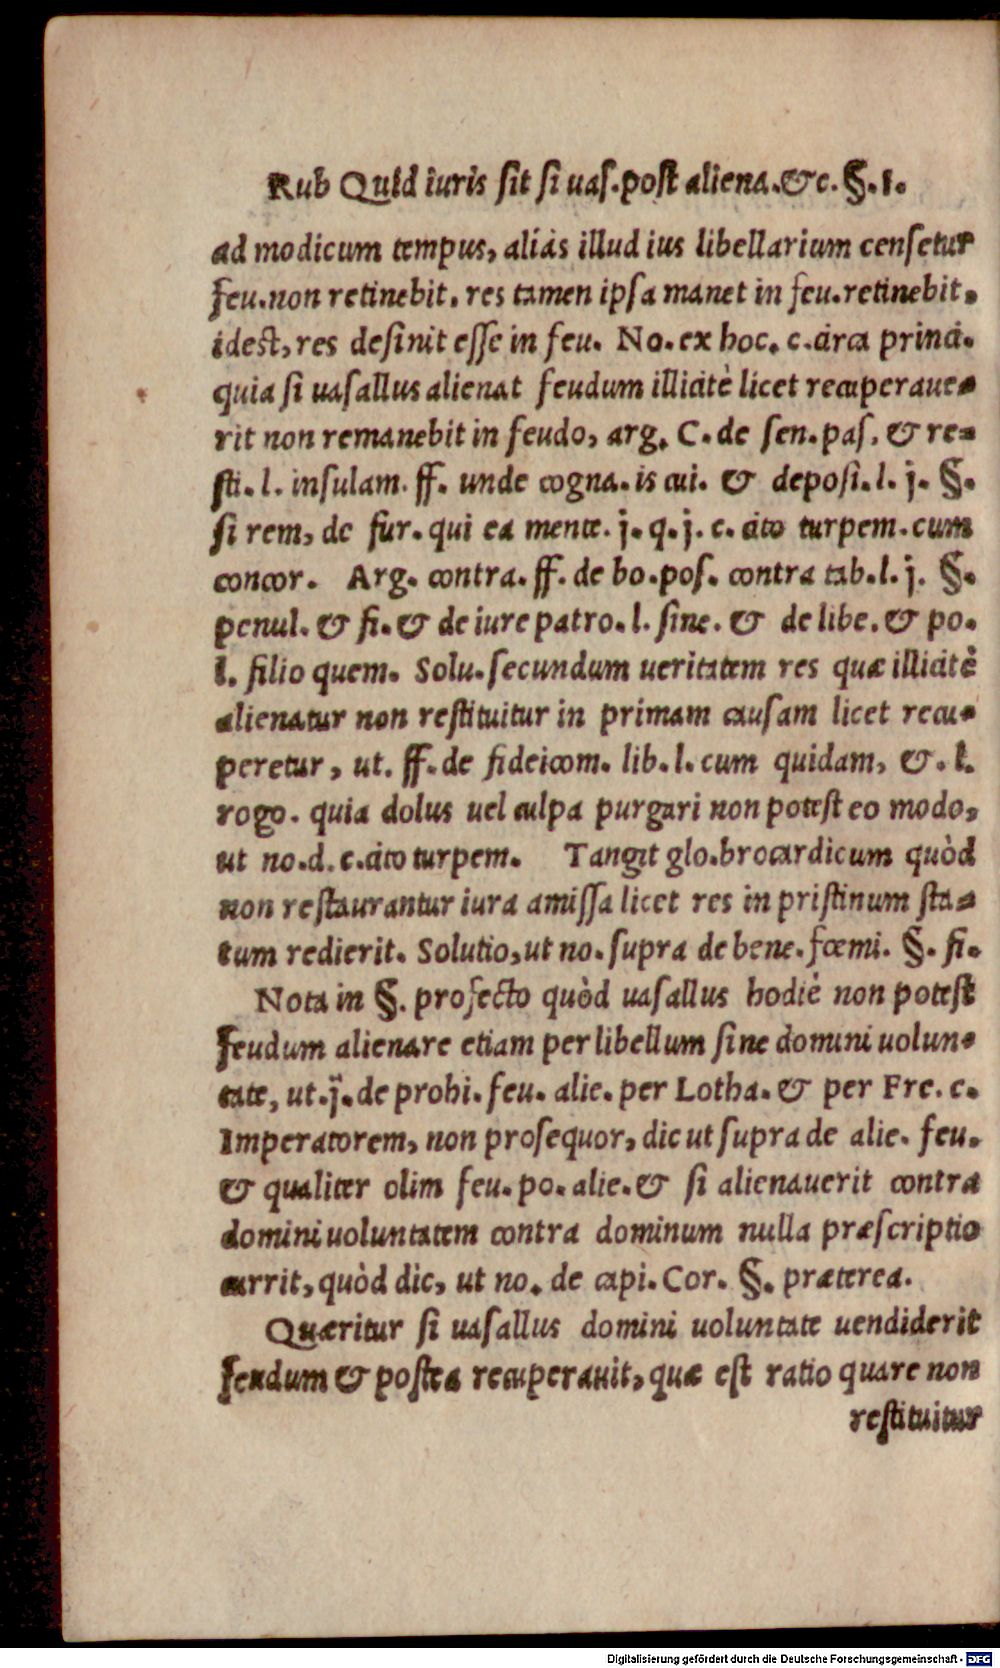 Rub Quid iuris sit si uas.post aliena.&c. §.1.
ad modicum tempus, aliàs illud ius libellarium censetur
feu.non retinebit. res tamen ipsa manet in feu.retinebit.
idest, res desinit esse in feu. No.ex hoc. c.circa princi.
quia si uasallus alienat feudum illicitè licet recuperaue-
rit non remanebit in feudo, arg. C.de sen.pas. & re-
sti.l. insulam. ff. unde cogna.is cui. & deposi.l. j. §.
si rem, de fur. qui ea mente. j.q.j. c. cito turpem.cum
concor. Arg. contra.ff.de bo.pos. contra tab.l.j. §.
penul. & fi.& de iure patro.l. sine. & de libe.& po.
l. filio quem. Solu.secundum ueritatem res quæ illicitè
alienatur non restituitur in primam causam licet recu-
peretur, ut. ff.de fideicom. lib.l.cum quidam, &. l.
rogo. quia dolus uel culpa purgari non potest eo modo,
ut no.d.c.cito turpem. Tangit glo.brocardicum quòd
non restaurantur iura amissa licet res in pristinum sta-
tum redierit. Solutio, ut no.supra de bene.fœmi. §. fi.
Nota in §. profecto quòd uasallus hodiè non potest
feudum alienare etiam per libellum sine domini uolun-
tate, ut.j.de prohi.feu. alie.per Lotha.& per Fre. c.
Imperatorem, non prosequor, dic ut supra de alie. feu.
& qualiter olim feu.po.alie.& si alienauerit contra
domini uoluntatem contra dominum nulla præscriptio
currit, quòd dic, ut no. de capi. Cor. §. præterea.
Quæritur si uasallus domini uoluntate uendiderit
feudum & postea recuperauit, quæ est ratio quare non
restituitur
Digitalisierung gefördert durch die Deutsche Forschungsgemeinschaft - DFG